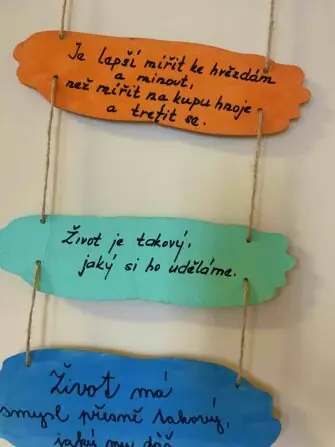 Je lepší mířit ke hvězdám
a minout,
než mířit na kupu hnoje
a trefit se.
Život je takový,
jaký si ho uděláme.
Život má
smysl přesně takový,
jaký mu dáš